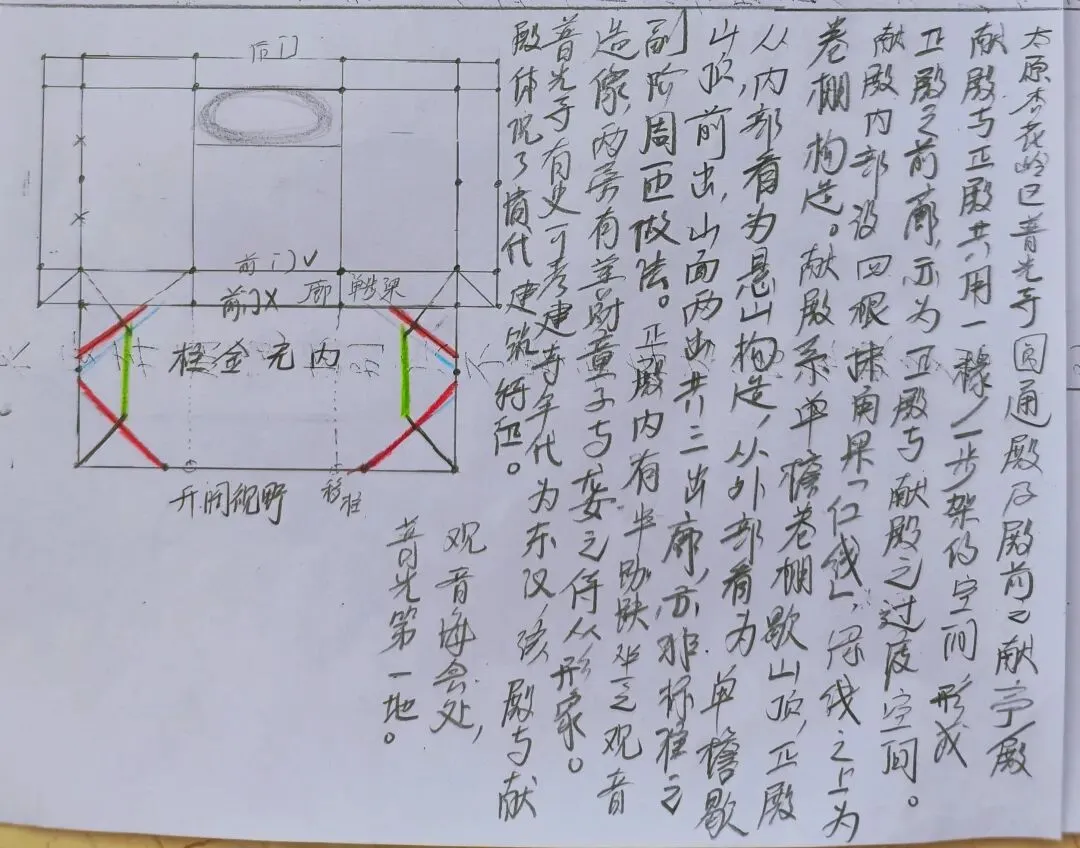 太原杏花岭区普光寺圆通殿及殿前之献亭/殿
献殿与正殿共用一椽/一步架的空间形成
正殿之前廊,亦为正殿与献殿之过度空间。
献殿内部设四根抹角梁「红线」,绿线之上为
卷棚构造。献殿系单檐卷棚歇山顶,正殿
从内部看为悬山构造,从外部看为单檐歇
山顶前出,山面两出共三出廊,亦非标准之
副阶周匝做法。正殿内有半跏趺坐之观音
造像,两旁有善财童子与龙女之侍从形象。
普光寺有史可考建寺年代为东汉,该殿与献
殿体现了清代建筑特征。
观音海会处,
普光第一地。
后门
前门√
前门X
廊 单步梁
内无金柱
开阔视野
移柱